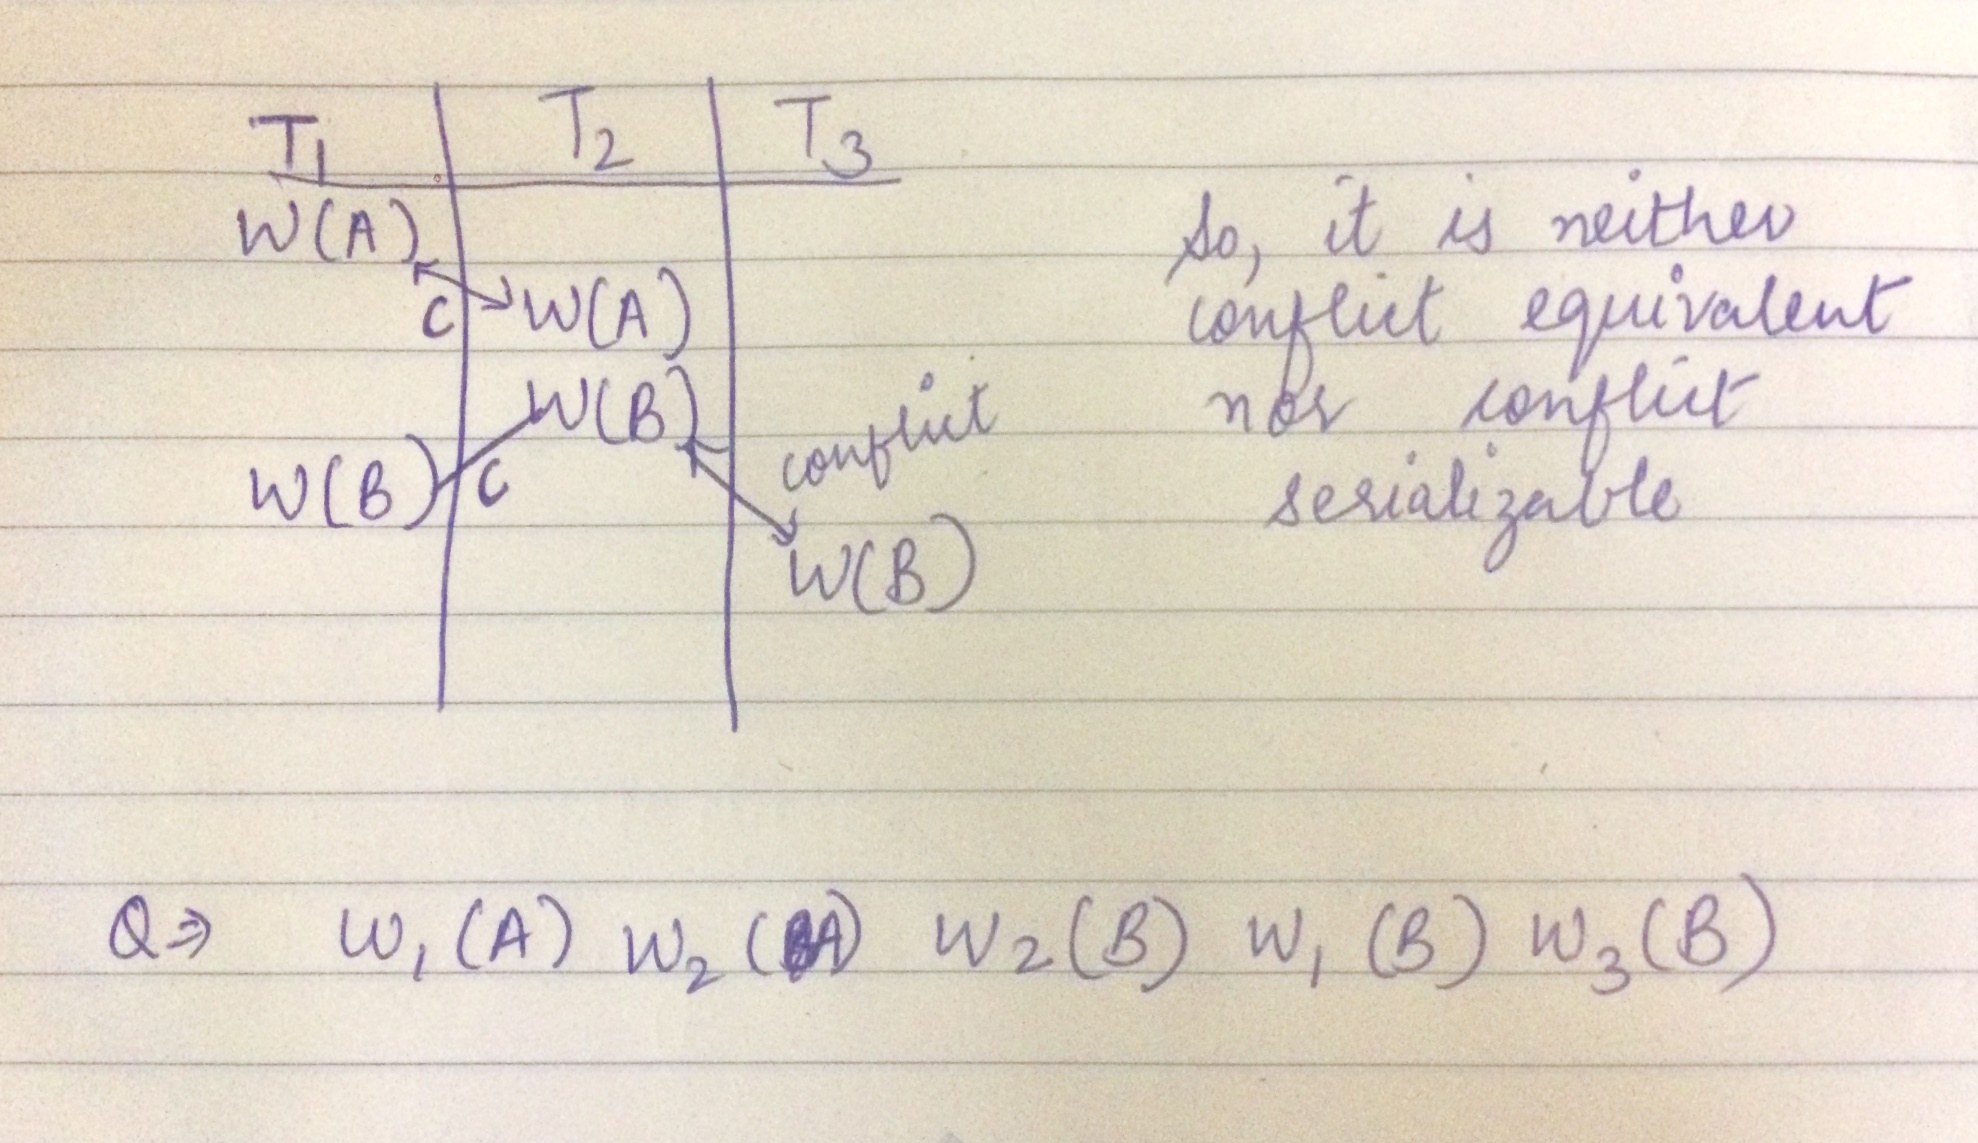 T1 T2 T3
W(A)
C W(A)
W(B) conflict
W(B) C
W(B)
So, it is neither
conflict equivalent
nor conflict
serializable
Q⇒ W1(A) W2(A) W2(B) W1(B) W3(B)